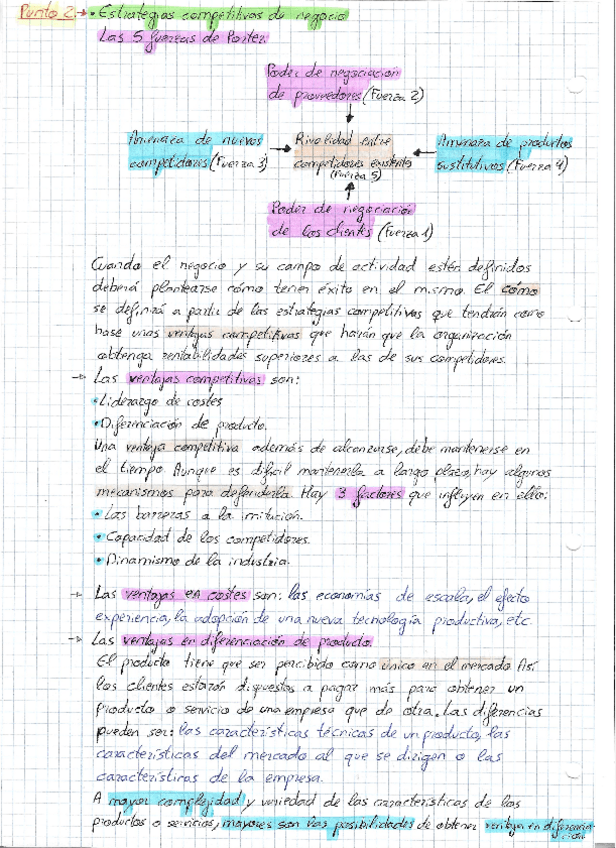 Punto 2: → • Estrategias competitivas de negocio
Las 5 fuerzas de Porter.
Poder de negociación
de proveedores (Fuerza 2)
Amenaza de nuevos
competidores (Fuerza 3)
Rivalidad entre
competidores existentes
(Fuerza 5)
Amenaza de productos
sustitutivos (Fuerza 4)
Poder de negociación
de los clientes (Fuerza 1)
Cuando el negocio y su campo de actividad estén definidos
deberá plantearse cómo tener éxito en el mismo. El cómo
se definirá a partir de las estrategias competitivas que tendrán como
base unas ventajas competitivas que harán que la organización
obtenga rentabilidades superiores a las de sus competidores.
→ Las ventajas competitivas son:
• Liderazgo de costes
• Diferenciación de producto.
Una ventaja competitiva además de alcanzarse, debe mantenerse en
el tiempo. Aunque es difícil mantenerla a largo plazo, hay algunos
mecanismos para defenderla. Hay 3 factores que influyen en ello:
• Las barreras a la imitación.
• Capacidad de los competidores.
• Dinamismo de la industria.
→ Las ventajas en costes son: las economías de escala, el efecto
experiencia, la adopción de una nueva tecnología productiva, etc.
→ Las ventajas en diferenciación de producto.
El producto tiene que ser percibido como único en el mercado. Así
los clientes estarán dispuestos a pagar más para obtener un
producto o servicio de una empresa que de otra. Las diferencias
pueden ser: las características técnicas de un producto, las
características del mercado al que se dirigen o las
características de la empresa.
A mayor complejidad y variedad de las características de los
productos o servicios, mayores son las posibilidades de obtener ventaja en diferencia-
ción